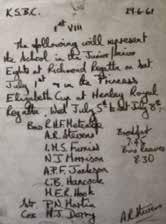 K.S.B.C. 29-6-61
1st VIII
The following will represent
the School in the Junior/Senior
Eights at Richmond Regatta on Sat
July 1st & in the Princess
Elizabeth Cup at Henley Royal
Regatta Wed July 5th to Sat July 8th.
Bow R.H.F. Metcalfe
A.R. Stevens Breakfast
I.H.S. Furniss
N.J. Morrison Bus leaves
A.P.F. Jackson 8.30
C.B. Hancock
M.E.R. Hook
Str. P.N. Martin
Cox M.J. Dorey
A.R. Stevens